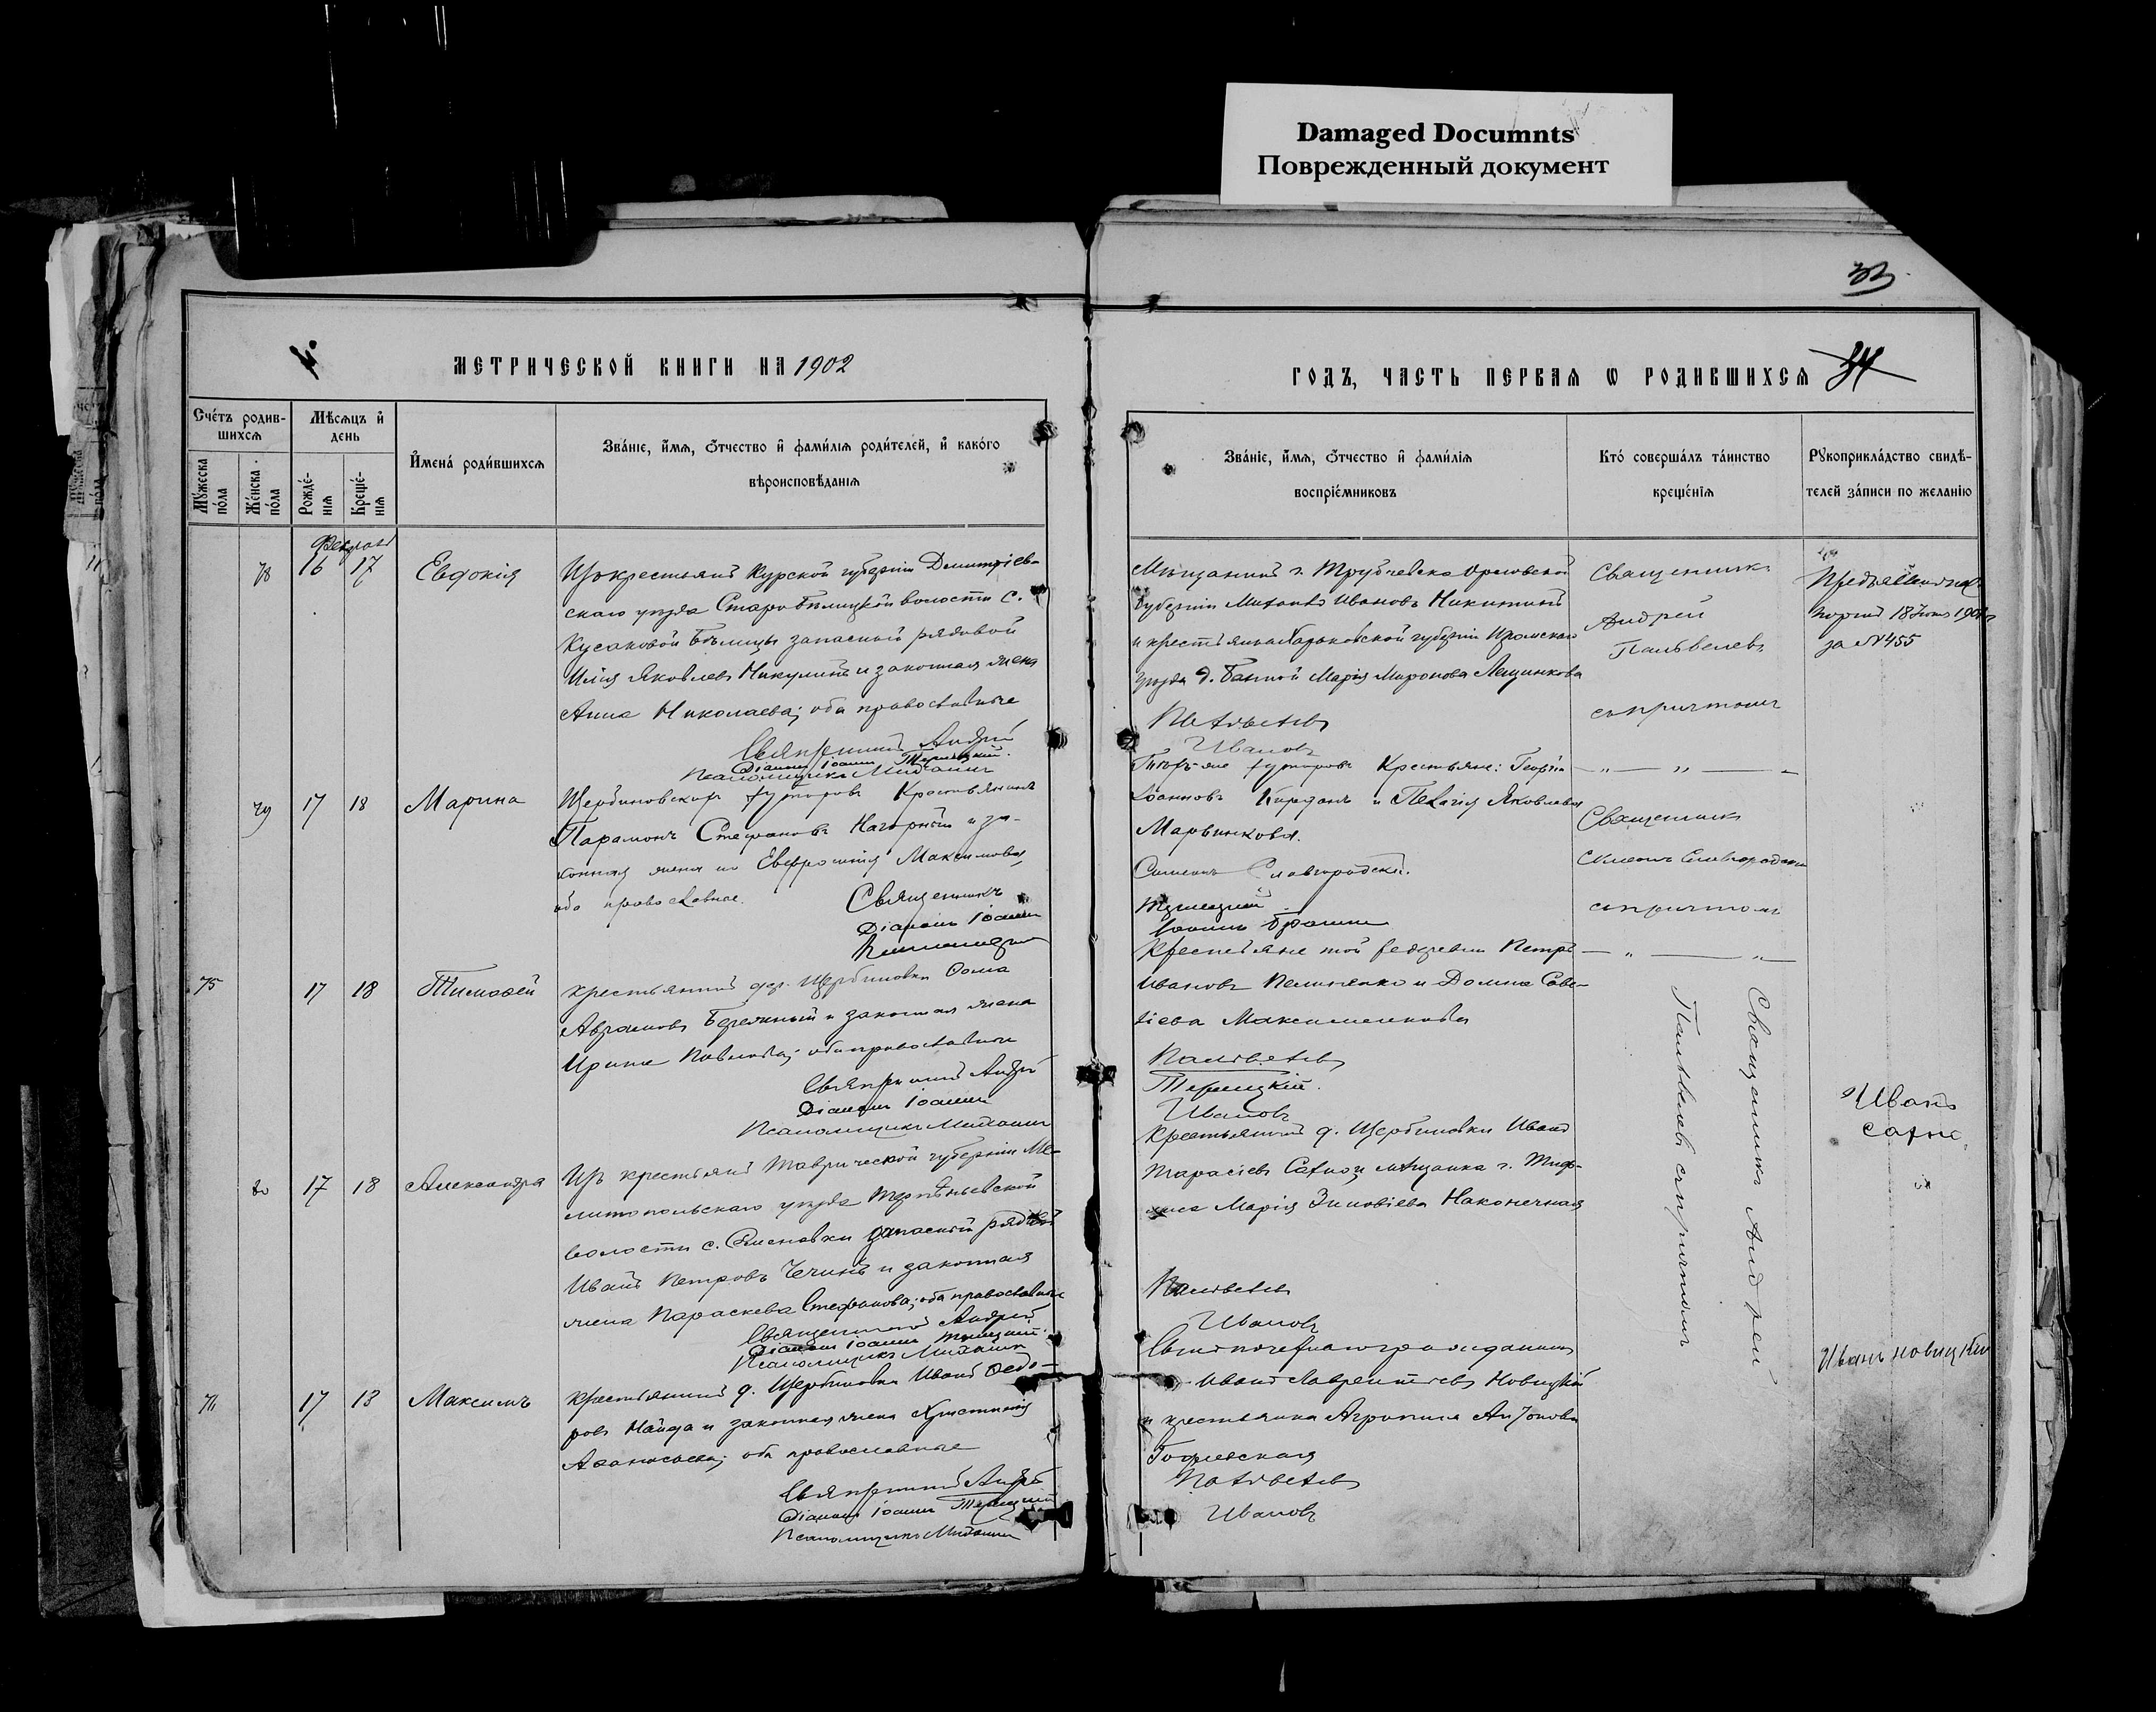 Damaged Documnts
Поврежденный документ
33
МЕТРИЧЕСКОЙ КНИГИ НА 1902
ГОДЪ, ЧАСТЬ ПЕРВАЯ Ѡ РОДИВШИХСЯ 34
Сче́тъ родив-
шихся
Мѣсяцъ и҆
день
Му́жеска по́ла
Же́нска по́ла
Рожде́-
нїя
Креще́-
нїя
И҆мена̀ роди́вшихся
Зва́нїе, и҆́мя, ѻ҆́тчество и҆ фами́лїя роди́телей, и҆ како́гѡ
вѣроисповѣ́данїя
Зва́нїе, и҆́мя, ѻ҆́тчество и҆ фами́лїя
воспрїе́мниковъ
Кто̀ соверша́лъ та́инство
креще́нїя
Рꙋкоприкла́дство свидѣ́-
телей за́писи по жела́нїю
Февраля
78 16 17 Евфокія
Изъ крестьянъ Курской губерніи Димитріев-
скаго уѣзда Старо Бѣлицкой волости с.
Кусаковой Бѣлицы запасный рядовой
Илія Яковлевъ Никулинъ и законная жена
Анна Николаева; оба православные
Священникъ Андрей
Діаконъ Іоаннъ Терлецкій.
Псаломщикъ Михаилъ
Мѣщанинъ г. Трубчевска Орловской
Губерніи Михаилъ Ивановъ Никитинъ
и крестьянка Харьковской губерніи Изюмскаго
уѣзда д. Банной Марія Миронова Лещинкова
Пальвелевъ
Ивановъ
Священникъ
Андрей
Пальвелевъ
съ причтомъ
за №455
79 17 18 Марина
Щербиновскихъ хуторовъ Крестьянинъ
Парамонъ Стефановъ Нагорный и за-
конная жена его Евфросинія Максимова,
оба православные.
Священникъ
Діаконъ Іоаннъ
Тѣхъ-же хуторовъ Крестьяне: Георгій
Іоанновъ и Пелагія Яковлева
Марвинкова.
Симеонъ Славгородскій.
Священникъ
Симеонъ Славгородскій
съ причтомъ
75 17 18 Тимоѳей
Крестьянинъ дер. Щербиновки Ѳома
Аврамовъ Бережный и законная жена
Ирина Павлова; оба православные
Священникъ Андрей
Діаконъ Іоаннъ
Псаломщикъ Михаилъ
Крестьяне той же деревни Петръ
Ивановъ и Домна Саве-
ліева Максименкова
Пальвелевъ
Терлецкій.
Ивановъ
Священникъ Андрей
Пальвелевъ съ причтомъ
80 17 18 Александра
Изъ крестьянъ Таврической губерніи Ме-
литопольскаго уѣзда Терпѣньевской
волости с. запасный рядовой
Иванъ Петровъ Чечинъ и законная
жена Параскева Стефанова; оба православные
Священникъ Андрей
Діаконъ Іоаннъ Терлецкій.
Псаломщикъ Михаилъ
Крестьянинъ д. Щербиновки Иванъ
Тарасіевъ Сахно и мѣщанка г. Тиф-
лиса Марія Зиновіева Наконечная
Пальвелевъ
Ивановъ
Иванъ
Сахно.
76 17 18 Максимъ
Крестьянинъ д. Щербиновки Иванъ Ѳедо-
ровъ Найда и законная жена Христина
Аѳанасьева; оба православные
Священникъ Андрей
Діаконъ Іоаннъ Терлецкій
Псаломщикъ Михаилъ
Иванъ Лаврентіевъ Новицкій
и крестьянка Агрипина Антонова
Пальвелевъ
Ивановъ
Иванъ Новицкій